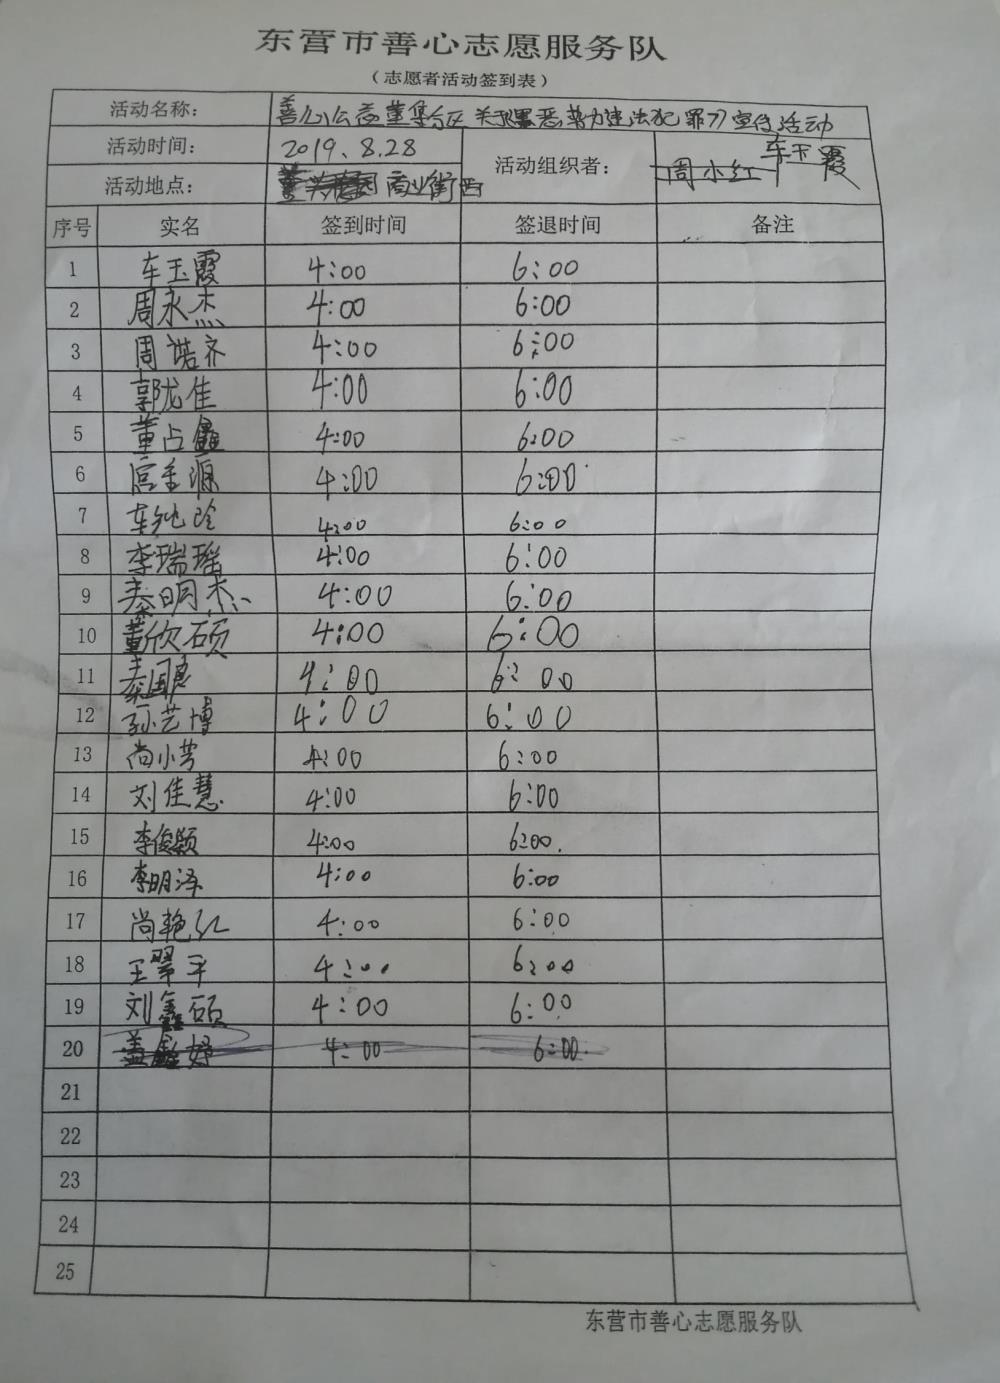 东营市善心志愿服务队
（志愿者活动签到表）
活动名称： 善心公益董集分区 关于黑恶势力违法犯罪 宣传活动
活动时间： 2019.8.28 活动组织者： 周小红 车玉霞
活动地点： 商业街西
序号 实名 签到时间 签退时间 备注
1 车玉霞 4:00 6:00
2 周永杰 4:00 6:00
3 周诺齐 4:00 6:00
4 郭龙佳 4:00 6:00
5 董占鑫 4:00 6:00
6 4:00 6:00
7 车 4:00 6:00
8 李瑞瑶 4:00 6:00
9 秦明杰 4:00 6:00
10 董欣硕 4:00 6:00
11 秦国惠 4:00 6:00
12 孙艺博 4:00 6:00
13 尚小芳 4:00 6:00
14 刘佳慧 4:00 6:00
15 李俊颖 4:00 6:00
16 李明泽 4:00 6:00
17 尚艳红 4:00 6:00
18 王翠平 4:00 6:00
19 刘鑫硕 4:00 6:00
20 盖鑫妤 4:00 6:00
21
22
23
24
25
东营市善心志愿服务队